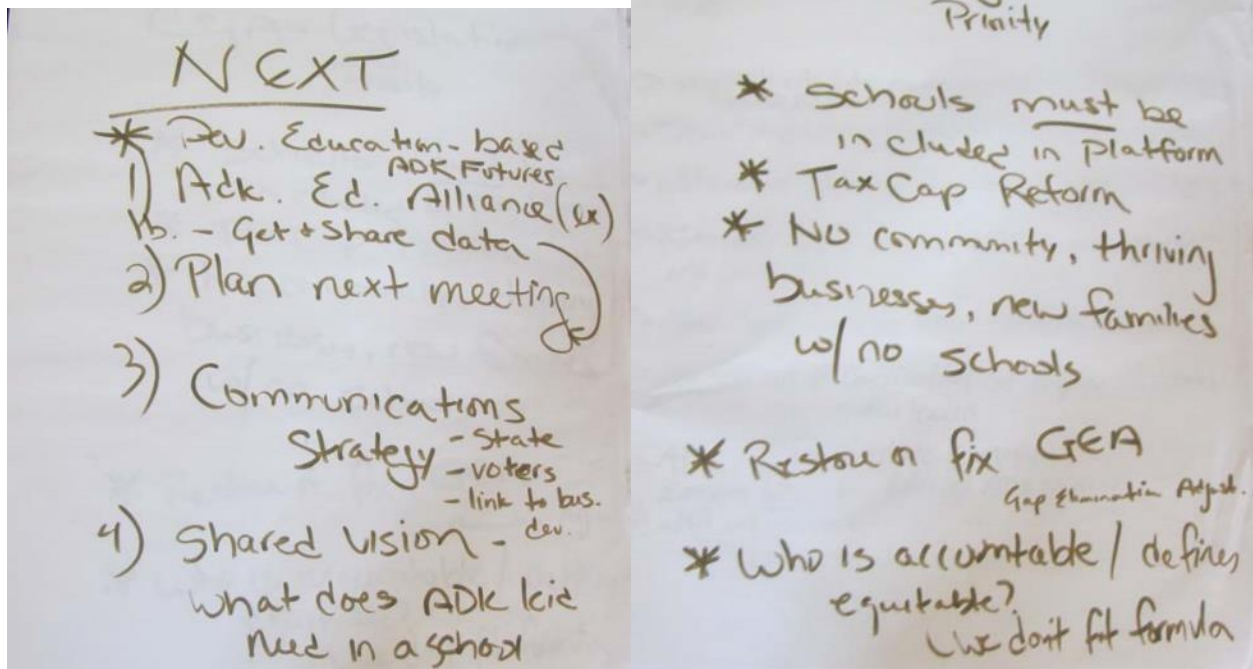 NEXT
* Dev. Education-based
ADK Futures
1) Adk. Ed. Alliance (ex)
1b. - Get + Share data
2) Plan next meeting
3) Communications
Strategy - State
- voters
- link to bus.
dev.
4) Shared Vision -
What does ADK kid
need in a school
Priority
* Schools must be
included in Platform
* Tax Cap Reform
* No community, thriving
businesses, new families
w/ no schools
* Restore or fix GEA
Gap Elimination Adjust.
* Who is accountable / defines
equitable?
We don't fit formula